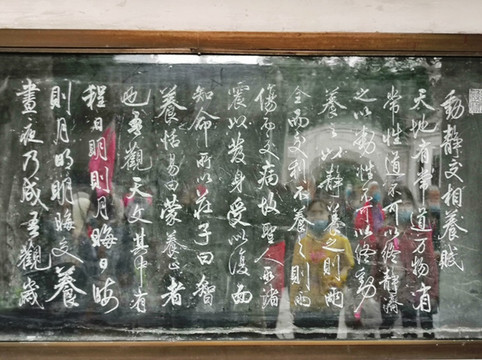 動靜交相養賦
天地有常道万物有
常性道不可以終靜濟
之以動性不可以終動
之以靜養之則兩
全而交利不養之則兩
傷而交病故聖人取諸
震以發身受以復而
知命所以莊子曰智
養恬易曰蒙養正者
也吾觀天文其中有
程日明則月晦日晦
則月明明晦交養
晝夜乃成吾觀歲